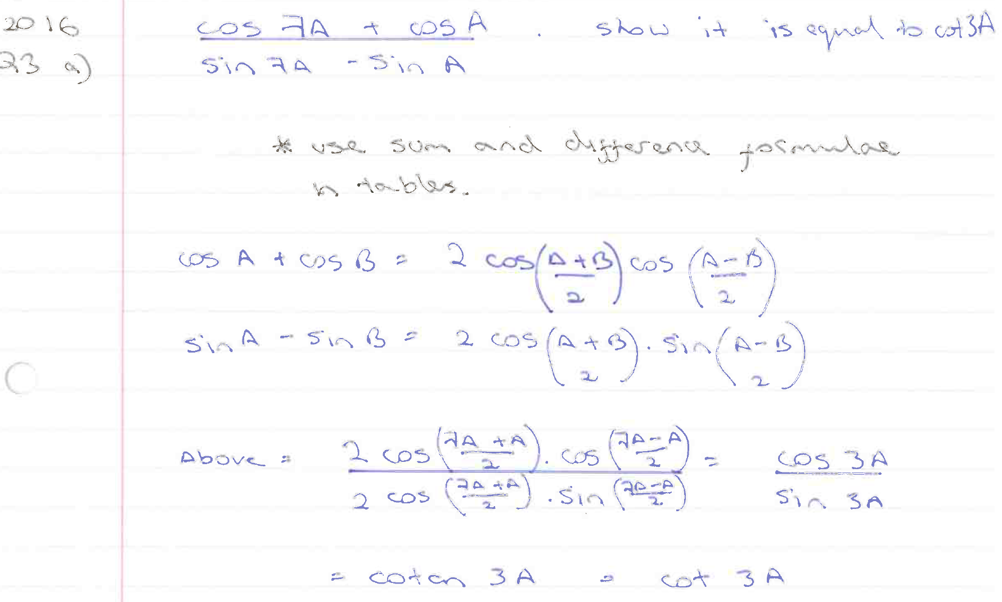 2016 cos 7A + cos A . show it is equal to cot3A
Q3 a) sin 7A - sin A
* use sum and difference formulae
in tables.
cos A + cos B = 2 cos((A+B)/2) cos((A-B)/2)
sin A - sin B = 2 cos(A+B 2) . sin(A-B 2)
Above = 2 cos((7A+A)/2) . cos((7A-A)/2) = cos 3A
2 cos((7A+A)/2) . sin((7A-A)/2) sin 3A
= cotan 3A = cot 3A